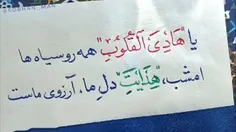 یا "هَادِیَ الْقُلُوبِ" همه روسیاه ها
امشب، "هِدَایَتِ" دلِ ما، آرزوی ماست